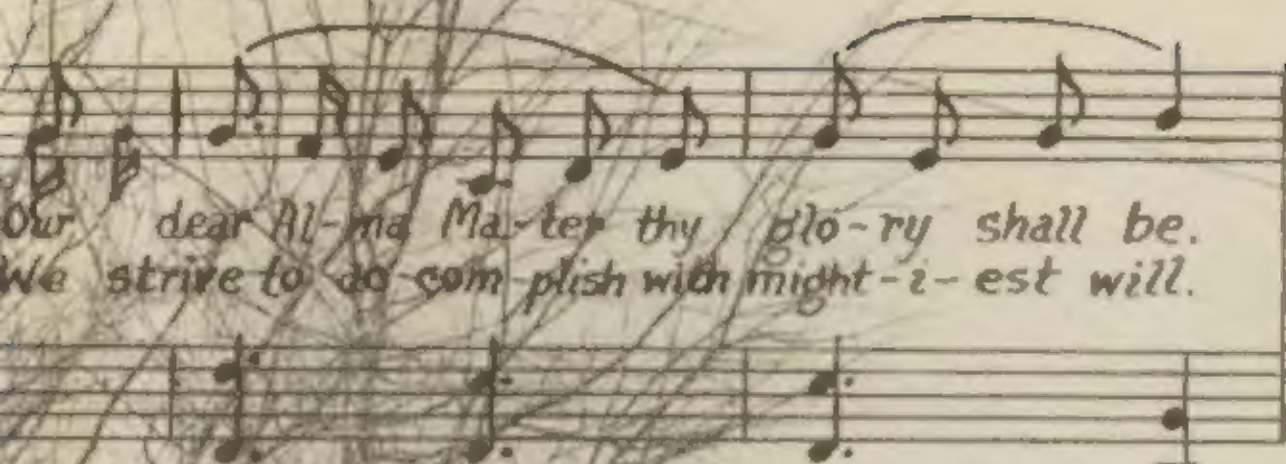 Our dear Al-ma Ma-ter thy glo-ry shall be.
We strive to ac-com-plish with might-i-est will.